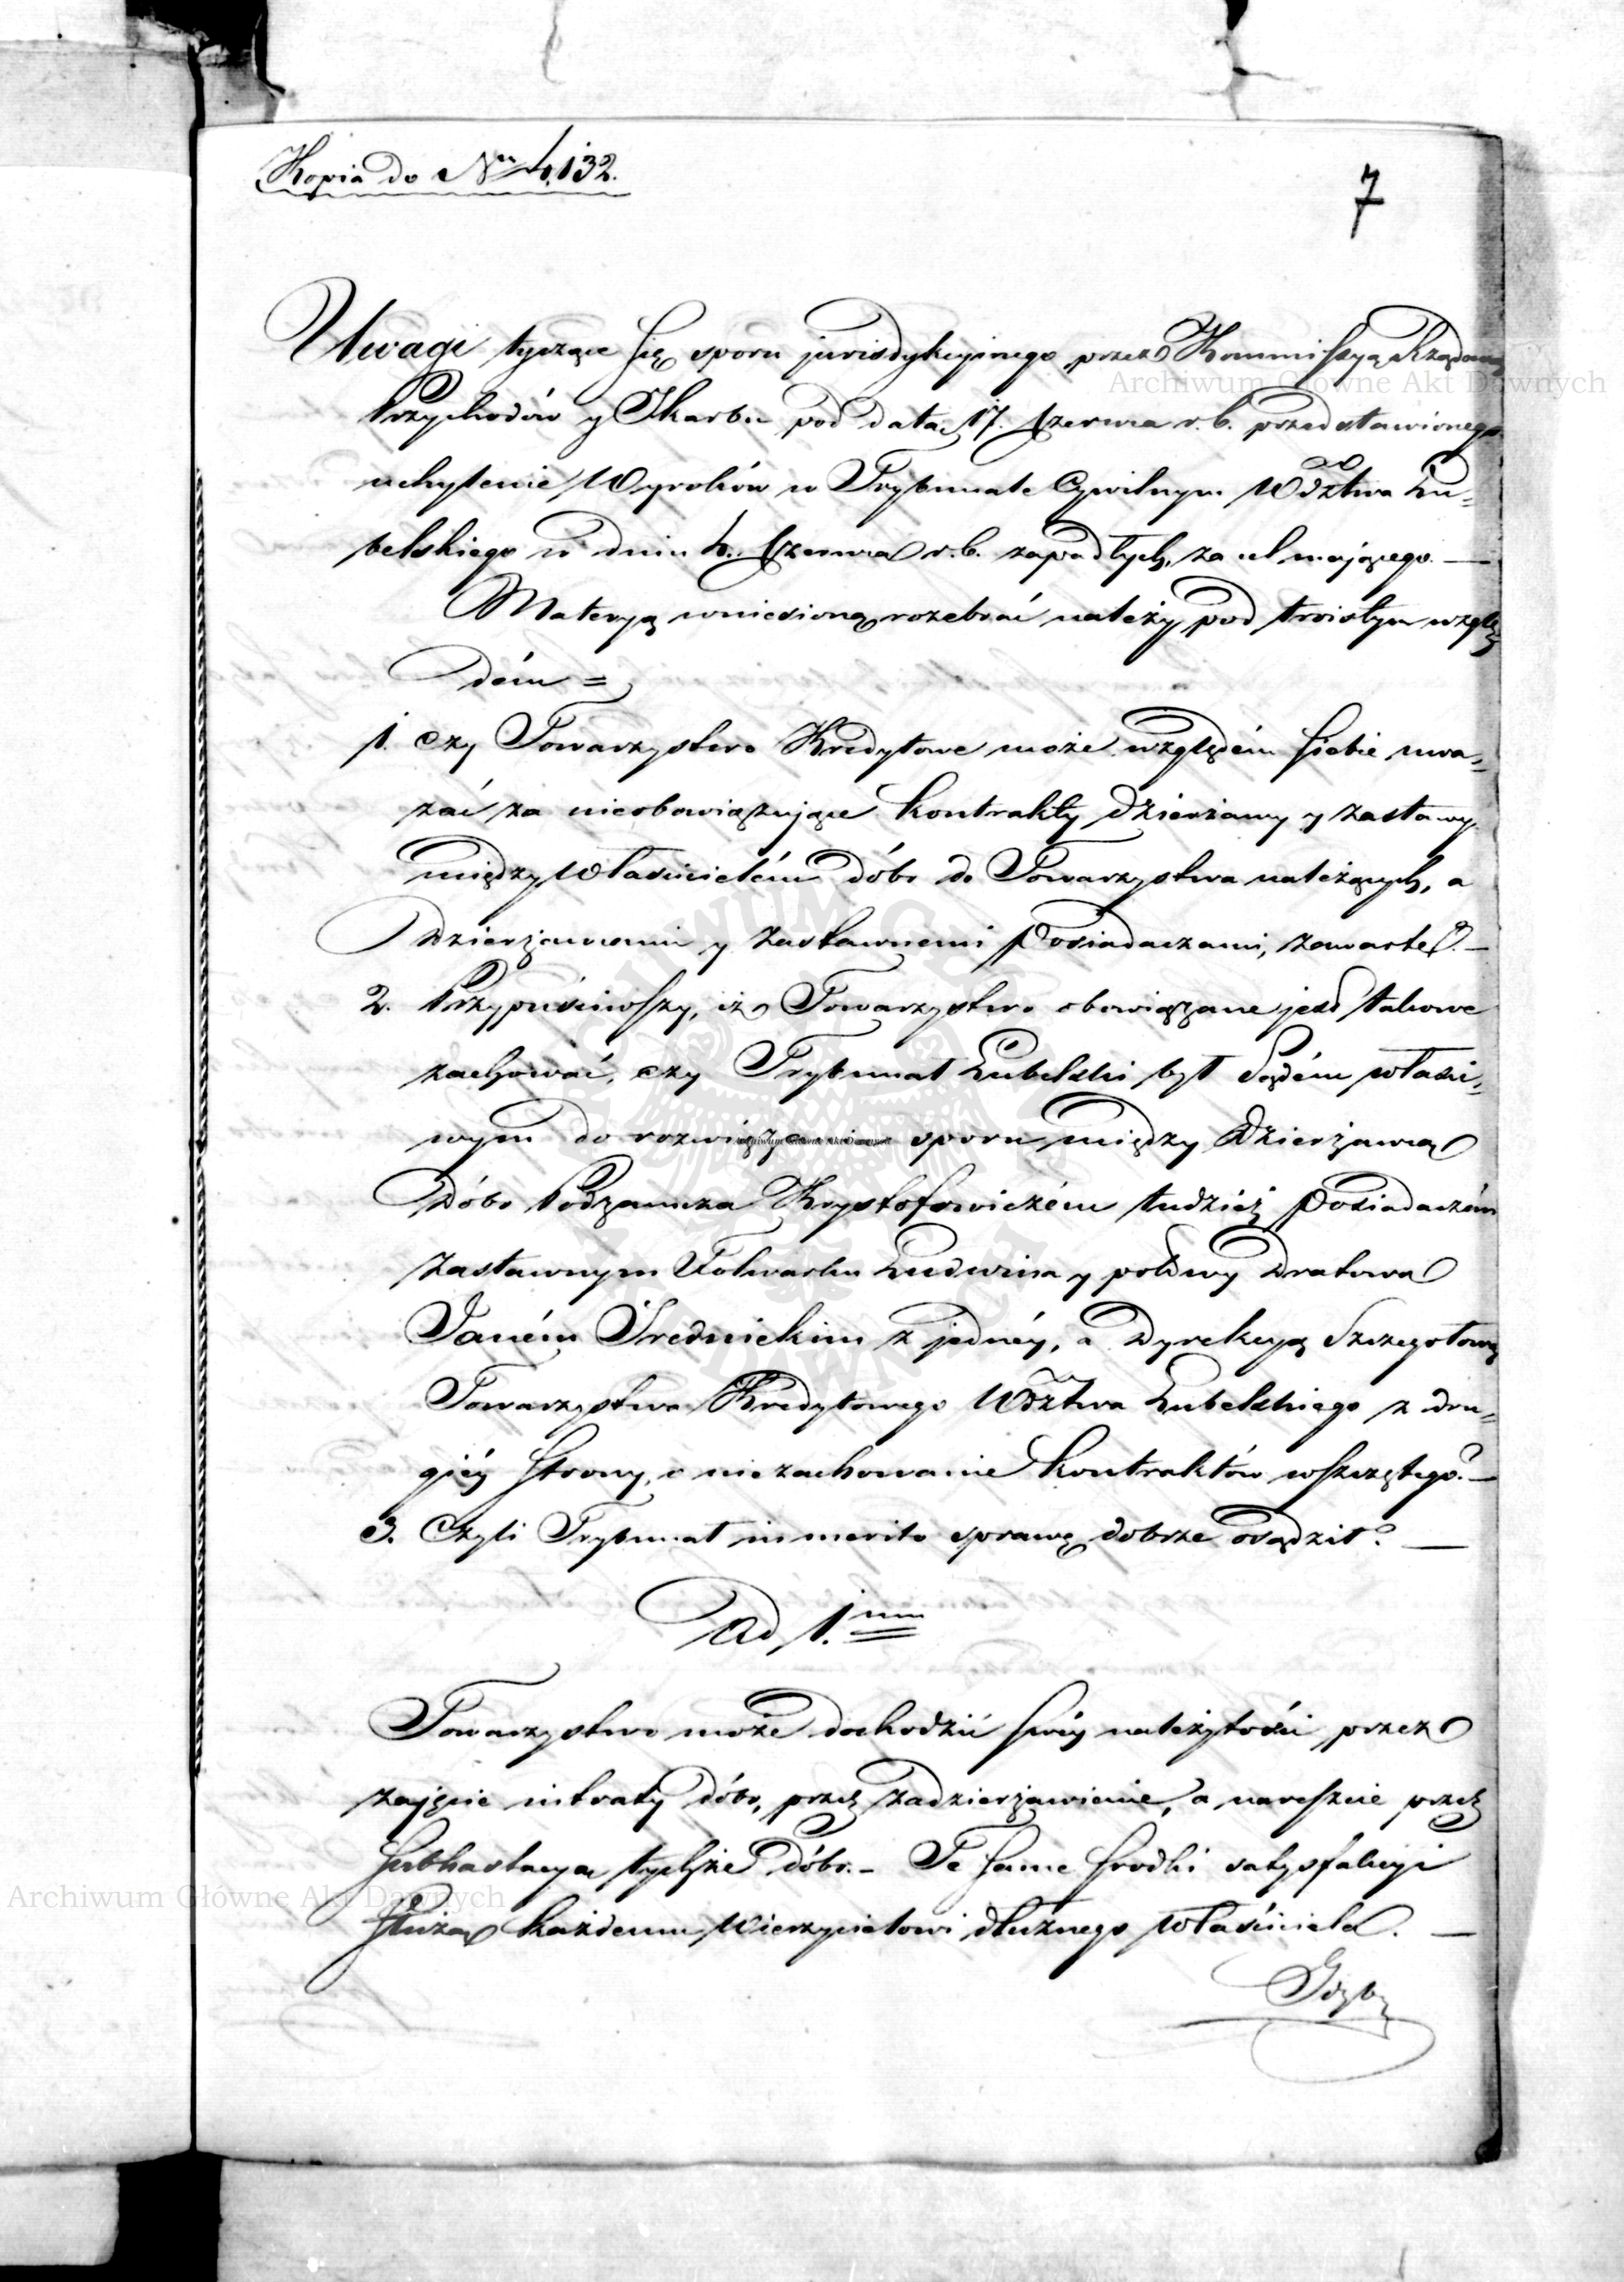 Kopia do Nru 4,132.
7
Uwagi tyczące się sporu jurisdykcyinego przez Kommissyą Rządową
Przychodów y Skarbu pod datą 17. Czerwca r. b. przedstawionego
uchylenie Wyroków w Trybunale Cywilnym Wdztwa Lu-
belskiego w dniu 4. Czerwca r. b. zapadłych, za cel mającego. —
Materyą wniesioną rozebrać należy pod troistym wzglę
dém =
1. czy Towarzystwo Kredytowe może względém siebie uwa-
żać za nieobowiązujące kontrakty dzierżawy y zastawy
między Właścicielém dóbr do Towarzystwa należących, a
Dzierżawcami y Zastawnemi Posiadaczami, zawarte? —
2. Przypuściwszy, iż Towarzystwo obowiązane jest takowe
zachować, czy Trybunał Lubelski był Sądém właści-
wym do rozwiązania sporu między Dzierżawcą
Dóbr Podzamcza Krysztofowiczém tudzież Posiadaczém
Zastawnym Folwarku Ludwina y połowy Dratowa
Janém Srednickim z jednéy, a Dyrekcyą Szczegółową
Towarzystwa Kredytowego Wdztwa Lubelskiego z dru-
giéy strony, o niezachowanie kontraktów wszczętego? —
3. Czyli Trybunał in merito sprawę dobrze osądził? —
Ad 1.mum
Towarzystwo może dochodzić swéy należytości przez
zajęcie intraty dóbr, przez zadzierżawienie, a nareszcie przez
subhastacyą tychże dóbr. - Te same srodki satysfakcyi
służą każdemu Wierzycielowi dłużnego Właściciela. —
Archiwum Główne Akt Dawnych
Archiwum Główne Akt Dawnych